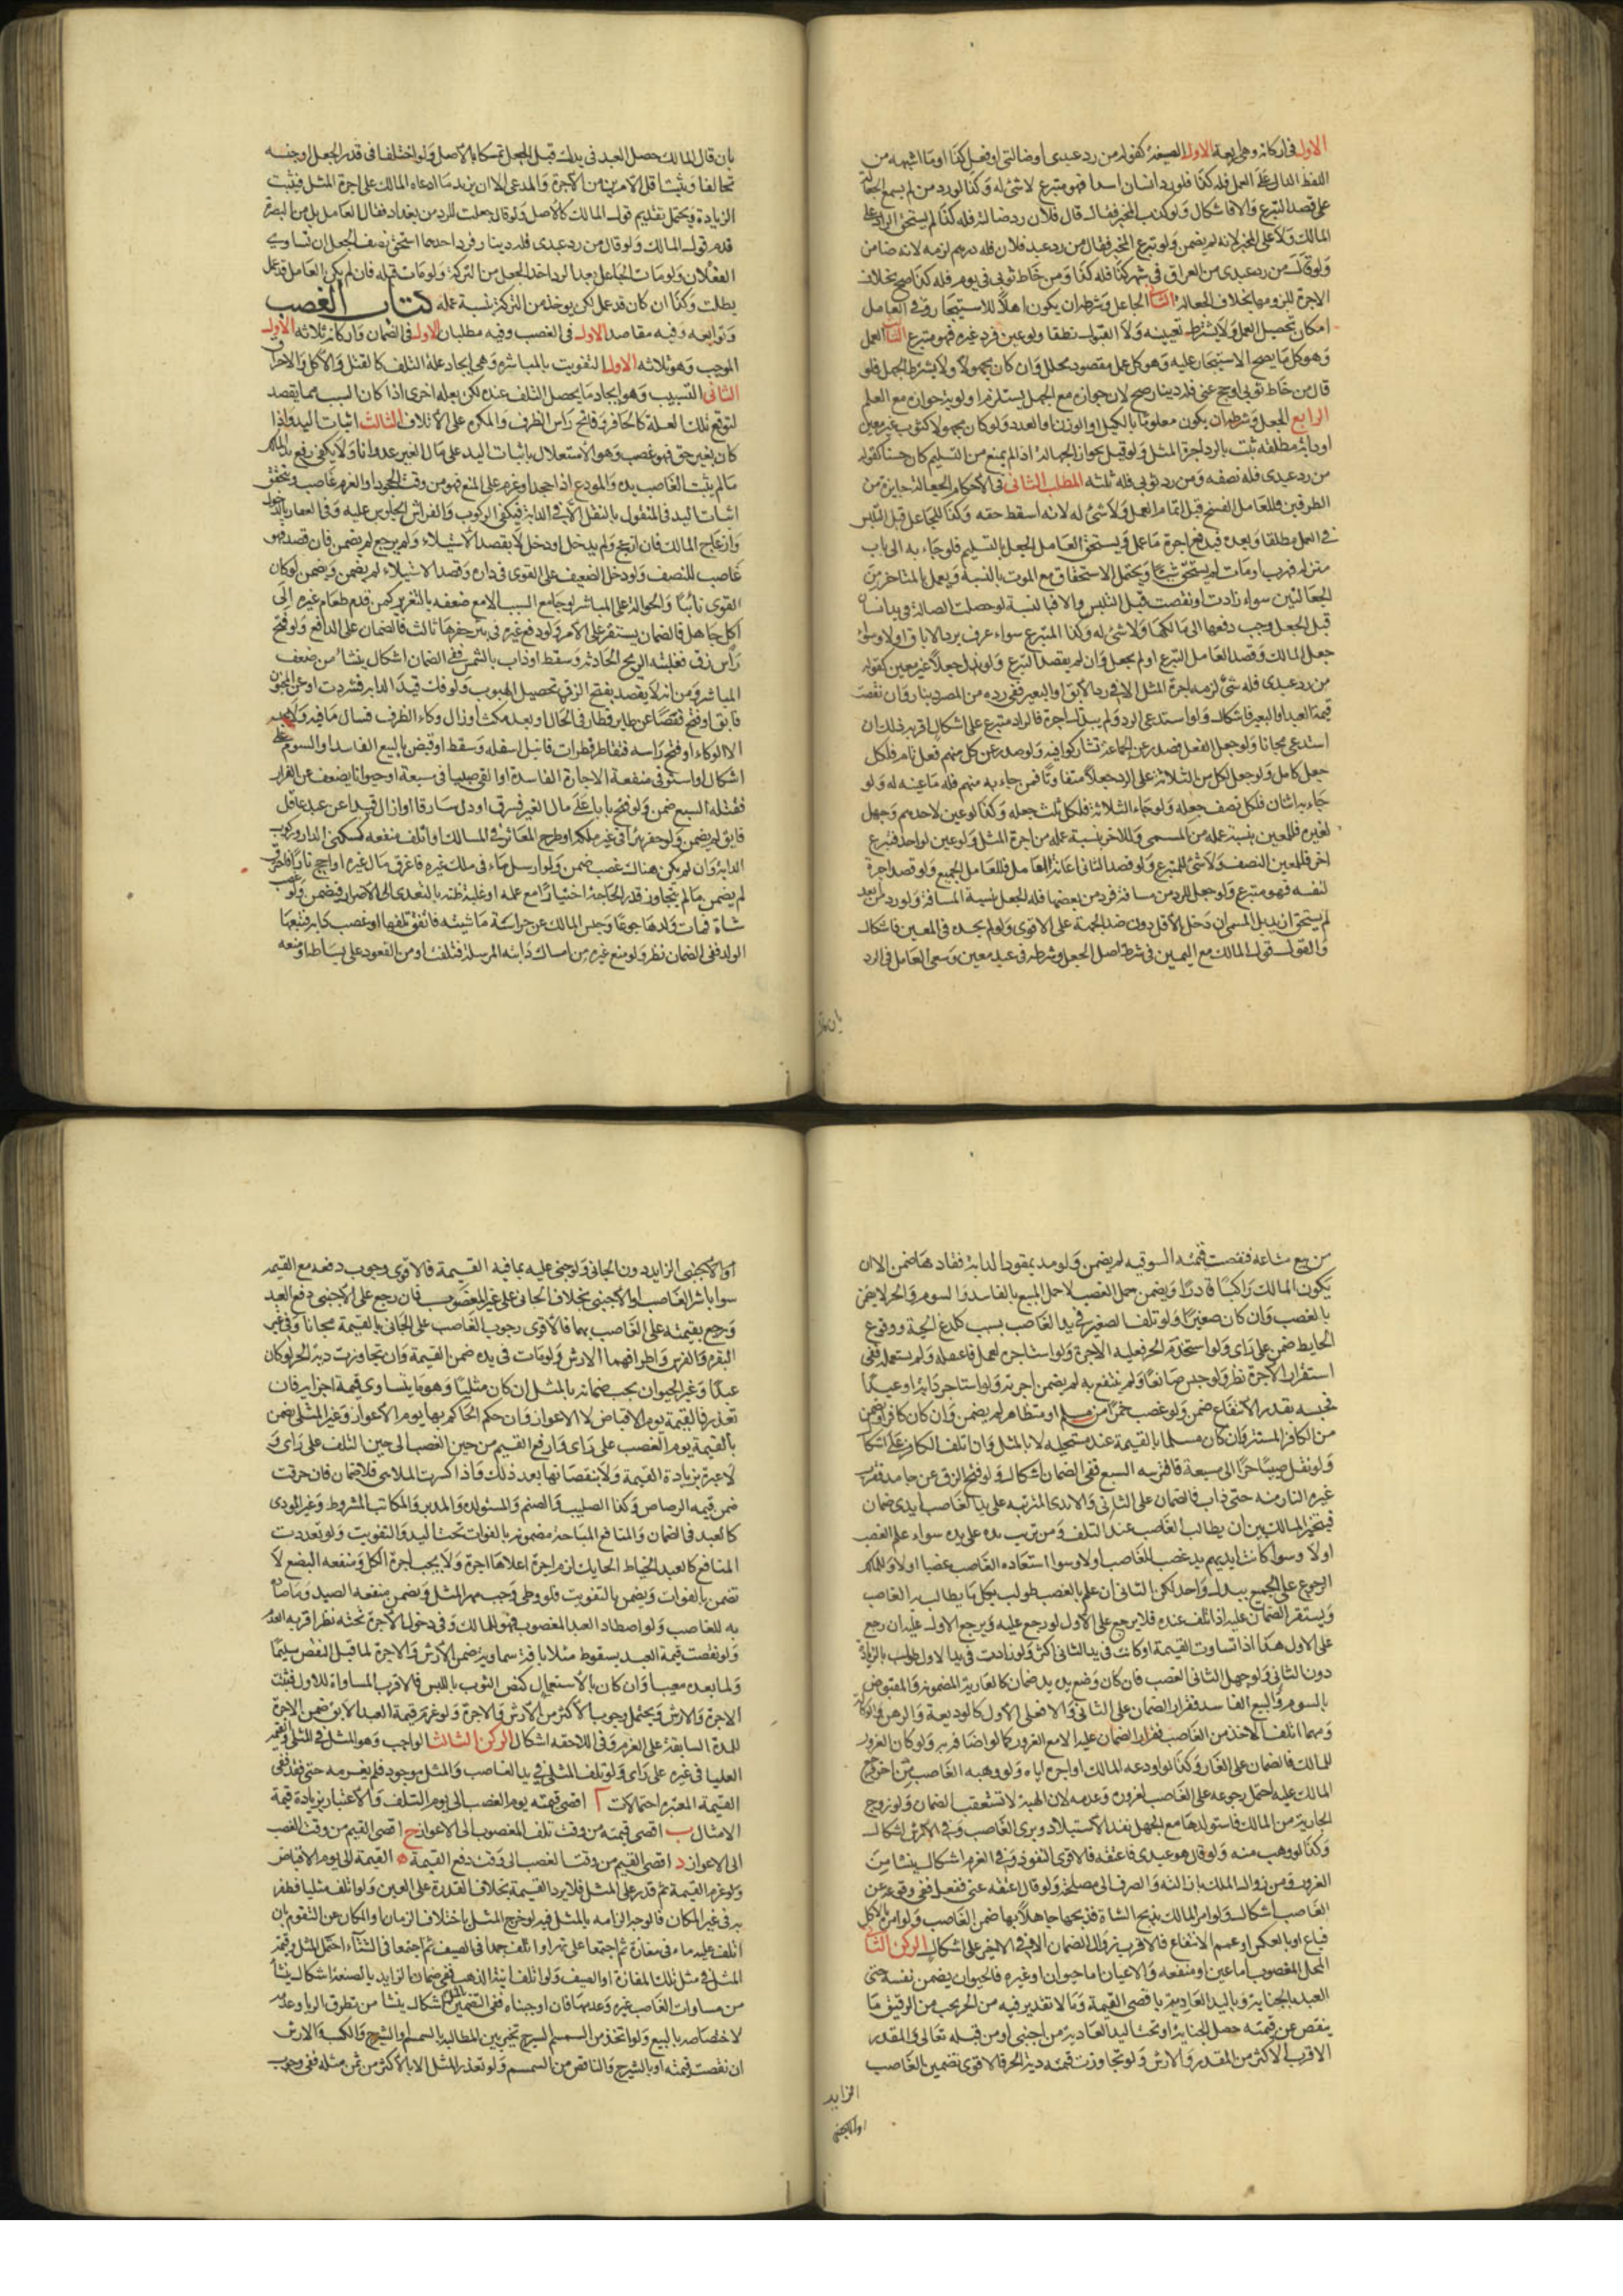 الاول في اركانه وهي اربعة الاول الصيغة كقوله من رد عبدي او ضالتي او فعل كذا او ما اشبهه من
اللفظ الدال على العمل فله كذا فلو رد انسان ابتدا فهو متبرع لا شئ له وكذا لو رد من لم يسمع الجعالة
على قصد التبرع والا فاشكال ولو كذب المخبر فقال قال فلان من رد ضالتي فله كذا لم يستحق الراد على
المالك ولا على المخبر لانه لم يضمن ولو تبرع المخبر فقال من رد عبد فلان فله درهم لزمه لانه ضامن
ولو قال من رد عبدي من العراق في شهر كذا فله كذا ومن خاط ثوبي في يوم فله كذا صح بخلاف
الاجرة للزومها بخلاف الجعالة الثاني الجاعل وشرطه ان يكون اهلا للاستيجار وفي العامل
امكان تحصيل العمل ولا يشترط تعيينه ولا القبول نطقا ولو عين فرد غيره فهو متبرع الثالث العمل
وهو كل ما يصح الاستيجار عليه وهو كل عمل مقصود محلل وان كان مجهولا ولا يشترط الجهل فلو
قال من خاط ثوبي او حج عني فله دينار صح لان جوازه مع الجهل يستلزم اولوية جوازه مع العلم
الرابع الجعل وشرطه ان يكون معلوما بالكيل او الوزن او العدد ولو كان مجهولا كثوب غير معين
او دابة مطلقة ثبت بالرد اجرة المثل ولو قيل بجواز الجهالة اذا لم يمنع من التسليم كان حسنا كقوله
من رد عبدي فله نصفه ومن رد ثوبي فله ثلثه المطلب الثاني في الاحكام الجعالة جايزة من
الطرفين فللعامل الفسخ قبل اتمام العمل ولا شئ له لانه اسقط حقه وكذا للجاعل قبل التلبس
في العمل مطلقا وبعده فيدفع اجرة ما عمل ويستحق العامل الجعل بالتسليم فلو جاء به الى باب
منزله فهرب او مات لم يستحق شيئا ويحتمل الاستحقاق مع الموت بالنسبة ويعمل بالمتاخر من
الجعالتين سواء زادت او نقصت قبل التلبس والا فبالنسبة لو حصلت الضالة في يد انسان
قبل الجعل وجب دفعها الى مالكها ولا شئ له وكذا المتبرع سواء عرف برد الاباق او لا وسواء
جعل المالك وقصد العامل التبرع او لم يجعل وان لم يقصد التبرع ولو بذل جعلا غير معين كقوله
من رد عبدي فله شئ لزمه اجرة المثل الا في رد الآبق او البعير ففي رده من المصر دينار وان نقصت
قيمة العبد او البعير فاشكال ولو استدعى الرد ولم يبذل اجرة فالراد متبرع على اشكال اقربه ذلك ان
استدعى مجانا ولو جعل الفعل فصدر عن الجماعة تشاركوا فيه ولو صدر عن كل منهم فعل تام فلكل
جعل كامل ولو جعل لكل من الثلاثة على الرد جعلا متفاوتا فمن جاء به منهم فله ما عينه له ولو
جاء به اثنان فلكل نصف جعله ولو جاء الثلاثة فلكل ثلث جعله وكذا لو عين لاحدهم وجهل
لغيره فللمعين بنسبة عمله من المسمى وللاخر بنسبة عمله من اجرة المثل ولو عين لواحد فتبرع
اخر فللمعين النصف ولا شئ للمتبرع ولو قصد الثاني اعانة العامل فللعامل الجميع ولو قصد اجرة
لنفسه فهو متبرع ولو جعل للرد من مسافة فرد من بعضها فله الجعل بنسبة المسافة ولو رد من ابعد
لم يستحق ازيد بل المسمى ان دخل الاقل دون ضد الجهة على الاقوى ولو لم يجده في المعين فاشكال
والقول قول المالك مع اليمين في شرط اصل الجعل وشرطه في عبد معين وسعي العامل في الرد
بان قال المالك حصل العبد في يدك قبل الجعل تمسكا بالاصل ولو اختلفا في قدر الجعل او جنسه
تحالفا ويثبت اقل الامرين من الاجرة والمدعى الا ان يزيد ما ادعاه المالك على اجرة المثل فيثبت
الزيادة ويحتمل تقديم قول المالك كالاصل ولو قال جعلت للرد من بغداد فقال العامل بل من البصرة
قدم قول المالك ولو قال من رد عبدي فله دينار فرد احدهما استحق نصف الجعل ان تساوى
الفعلان ولو مات الجاعل بعد الرد اخذ الجعل من التركة ولو مات قبله فان لم يكن العامل قد عمل
بطلت وكذا ان كان قد عمل لكن يوخذ من التركة بنسبة عمله كتاب الغصب
وتوابعه وفيه مقاصد الاول في الغصب وفيه مطلبان الاول في الضمان واركانه ثلاثة الاول
الموجب وهو ثلاثه الاول التفويت بالمباشرة وهي ايجاد علة التلف كالقتل والاكل والاحراق
الثاني التسبيب وهو ايجاد ما يحصل التلف عنده لكن بعلة اخرى اذا كان السبب مما يقصد
لتوقع تلك العلة كالحافر وفاتح راس الظرف والمكره على الاتلاف الثالث اثبات اليد واذا
كان بغير حق فهو غصب وهو الاستقلال باثبات اليد على مال الغير عدوانا ولا يكفي رفع يد المالك
ما لم يثبت الغاصب يده والمودع اذا جحد او عزم على المنع فهو من وقت الجحود او العزم غاصب ويتحقق
اثبات اليد في المنقول بالنقل الا في الدابة فيكفي الركوب والفراش الجلوس عليه وفي العقار بالدخول
وازعاج المالك فان ازعج ولم يدخل او دخل لا بقصد الاستيلاء ولم يزعج لم يضمن فان قصد فهو
غاصب للنصف ولو دخل الضعيف على القوي في داره وقصد الاستيلاء لم يضمن ويضمن لو كان
القوي نائبا والحوالة على المباشر لو جامع السبب الا مع ضعفه بالتغرير كمن قدم طعام غيره الى
اكل جاهل فالضمان يستقر على الآمر ولو دفع غيره في بئر حفرها ثالث فالضمان على الدافع ولو فتح
راس زق فقلبته الريح الحادثة وسقط او ذاب بالشمس ففي الضمان اشكال ينشا من ضعف
المباشر ومن انه لا يقصد بفتح الزق تحصيل الهبوب ولو فك قيد الدابة فشردت او عن المجنون
فابق او فتح قفصا عن طاير فطار في الحال او بعد مكث او زال وكاء الظرف فسال ما فيه ولا يحبسه
الا الوكاء او فتح راسه فتقاطر قطرات فابتل اسفله وسقط او قبض بالبيع الفاسد او السوم على
اشكال او استوفى منفعة الاجارة الفاسدة او القى صبيا في مسبعة او حيوانا يضعف عن الفرار
فقتله السبع ضمن ولو فتح بابا على مال الغير فسرق او دل سارقا او ازال قيدا عن عبد عاقل
فابق لم يضمن ولو حفر بئرا في غير ملكه او طرح المعاثر في المسالك او اتلف منفعه كسكنى الدار وركوب
الدابة وان لم يكن هناك غصب ضمن ولو ارسل ماء في ملك غيره فاغرق مال غيره او اجج نارا فاحرق
لم يضمن ما لم يتجاوز قدر الحاجة اختيارا مع علمه او غلبة ظنه بالتعدي الى الاضرار فيضمن ولو غصب
شاة فمات ولدها جوعا او حبس المالك عن حراسة ماشيته فاتفق تلفها او غصب دابة فتبعها
الولد ففي الضمان نظر ولو منع غيره من امساك دابته المرسلة فتلفت او من القعود على بساطه او منعه
من بيع متاعه فنقصت قيمته السوقيه لم يضمن ولو مد بمقود الدابة فقادها ضمن الا ان
يكون المالك راكبا قادرا ويضمن حمل الغصب لا حمل المبيع بالفاسد والسوم والحر لا يضمن
بالغصب وان كان صغيرا ولو تلف الصغير في يد الغاصب بسبب كلدغ الحية ووقوع
الحايط ضمن على راى ولو استخدم الحر فعليه الاجرة ولو استاجره لعمل فاعتقله ولم يستعمله ففي
استقرار الاجرة نظر ولو حبس صانعا ولم ينتفع به لم يضمن اجرته ولو استاجر دابة او عبدا
فحبسه بقدر الانتفاع ضمن ولو غصب خمرا من مسلم او متظاهر لم يضمن وان كان كافرا ويضمن
من الكافر المستتر وان كان مسلما بالقيمة عند مستحليه لا بالمثل وان اتلف الكافر على اشكال
ولو نقل صبيا حرا الى مسبعة فافترسه السبع ففي الضمان اشكال ولو فتح الزق عن جامد فقرب
غيره النار منه حتى ذاب فالضمان على الثاني والايدي المترتبه على يد الغاصب ايدي ضمان
فيتخير المالك بين ان يطالب الغاصب عند التلف ومن ترتب يده على يده سواء علم الغصب
او لا وسواء كانت ايديهم يد غصب للغاصب او لا وسواء استعاده الغاصب غصبا او لا وللمالك
الرجوع على الجميع ببدل واحد لكن الثاني ان علم بالغصب طولب بكل ما يطالب به الغاصب
ويستقر الضمان عليه اذا تلف عنده فلا يرجع على الاول لو رجع عليه ويرجع الاول عليه ان رجع
على الاول هذا اذا تساوت القيمة او كانت في يد الثاني اكثر ولو زادت في يد الاول طولب بالزيادة
دون الثاني ولو جهل الثاني الغصب فان كان وضع يده يد ضمان كالعارية المضمونة والمقبوض
بالسوم والبيع الفاسد فقرار الضمان على الثاني والا فعلى الاول كالوديعة والرهن والوكالة
ومهما اتلف الاخذ من الغاصب فقرار الضمان عليه الا مع الغرور كما لو اضافه به ولو كان الغرور
للمالك فالضمان على الغار وكذا لو اودعه المالك او اجره اياه ولو وهبه الغاصب من اخر فرجع
المالك عليه احتمل رجوعه على الغاصب لغروره وعدمه لان الهبة لا تستعقب الضمان ولو زوج
الجارية من المالك فاستولدها مع الجهل نفذ الاستيلاد وبرى الغاصب وفي الارش اشكال
وكذا لو وهب منه ولو قال هو عبدي فاعتقه فالاقوى النفوذ وفي الغرم اشكال ينشا من
الغرور ومن زوال الملك بازالته والصرف الى مصلحته ولو قال اعتقه عني ففعل ففي وقوعه عن
الغاصب اشكال ولو امر المالك بذبح الشاة فذبحها جاهلا بها ضمن الغاصب ولو امره بالاكل
فباع او بالعكس او عمم الانتفاع فالاقرب زوال الضمان الا في الاخير على اشكال الركن الثاني
المحل المغصوب اما عين او منفعه والاعيان اما حيوان او غيره فالحيوان يضمن نفسه حتى
العبد بالجناية وباليد العادية باقصى القيمة وما لا تقدير فيه من الحر يجب من الرقيق ما
ينقص عن قيمته حصل بالجناية او تحت اليد العادية من اجنبي او من قبله تعالى وفي المقدر
الاقرب الاكثر من المقدر والارش ولو تجاوزت قيمته دية الحر فالاقوى تضمين الغاصب
الزايد
او الاجنبي
او الاجنبي الزايد دون الجاني ولو جنى عليه بما فيه القيمة فالاقوى وجوب دفعه مع القيمة
سوا باشر الغاصب او الاجنبي بخلاف الجاني على غير المغصوب فان رجع على الاجنبي دفع العبد
ورجع بقيمته على الغاصب بهما فالاقوى رجوع الغاصب على الجاني بالقيمة مجانا وفي عين
البقرة والفرس واطرافهما الارش ولو مات في يده ضمن القيمة وان تجاوزت دية الحر لو كان
عبدا وغير الحيوان يجب ضمانه بالمثل ان كان مثليا وهو ما يتساوى قيمة اجزايه فان
تعذر فالقيمة يوم الاقباض لا الاعواز وان حكم الحاكم بها يوم الاعواز وغير المثلي يضمن
بالقيمة يوم الغصب على راى وارفع القيم من حين الغصب الى حين التلف على راى و
لا عبرة بزيادة القيمة ولا بنقصانها بعد ذلك واذا كسرت الملاهي فلا ضمان فان حرقت
ضمن قيمة الرصاص وكذا الصليب والصنم والمستولدة والمدبر والمكاتب المشروط وغير المودى
كالعبد في الضمان والمنافع المباحة مضمونة بالفوات تحت اليد والتفويت ولو تعددت
المنافع كالعبد الخياط الحايك لزمه اجرة اعلاها اجرة ولا يجب اجرة الكل ومنفعه البضع لا
تضمن بالفوات ويضمن بالتفويت فلو وطى وجب مهر المثل ويضمن منفعة الصيد وما صاد
به للغاصب ولو اصطاد العبد المغصوب فهو للمالك وفي دخول الاجرة تحته نظر اقربه العدم
ولو نقصت قيمة العبد بسقوط مثلا بافة سماوية ضمن الارش والاجرة لما قبل النقص سليما
ولما بعده معيبا وان كان بالاستعمال كنقص الثوب باللبس فالاقرب المساواة للاول فتثبت
الاجرة والارش ويحتمل وجوب الاكثر من الارش والاجرة ولو غرم قيمة العبد الآبق ضمن الاجرة
للمدة السابقة على الغرم وفي اللاحقه اشكال الركن الثالث الواجب وهو المثل في المثلي والقيمة
العليا في غيره على راى ولو تلف المثلي في يد الغاصب والمثل موجود فلم يغرمه حتى فقد ففي
القيمة المعتبره احتمالات ا اقصى قيمته يوم الغصب الى يوم التلف ولا اعتبار بزيادة قيمة
الامثال ب اقصى قيمته من وقت تلف المغصوب الى الاعواز ج اقصى القيم من وقت الغصب
الى الاعواز د اقصى القيم من وقت الغصب الى وقت دفع القيمة ه القيمة الى يوم الاقباض
ولو غرم القيمة ثم قدر على المثل فلا يرد القيمة بخلاف القدرة على العين ولو اتلف مثليا فظفر
به في غير المكان فالوجه الزامه بالمثل فيه لو خرج المثل باختلاف الزمان او المكان عن التقوم بان
اتلف عليه ماء في مفازة ثم اجتمعا على نهر او اتلف جمدا في الصيف ثم اجتمعا في الشتاء احتمل المثل وقيمة
المثل في مثل تلك المفازة او الصيف ولو اتلف انية الذهب ففي ضمان الزايد بالصنعة اشكال ينشا
من مساوات الغاصب غيره وعدمها فان اوجبناه ففي التضمين بالمثل اشكال ينشا من تطرق الربا وعدمه
لاختصاصه بالبيع ولو اتخذ من السمسم الشيرج تخير بين المطالبه بالسمسم او الشيرج والكسب والارش
ان نقصت قيمته او بالشيرج والناقص من السمسم ولو تعذر المثل الا بالاكثر من ثمن مثله ففي وجوب